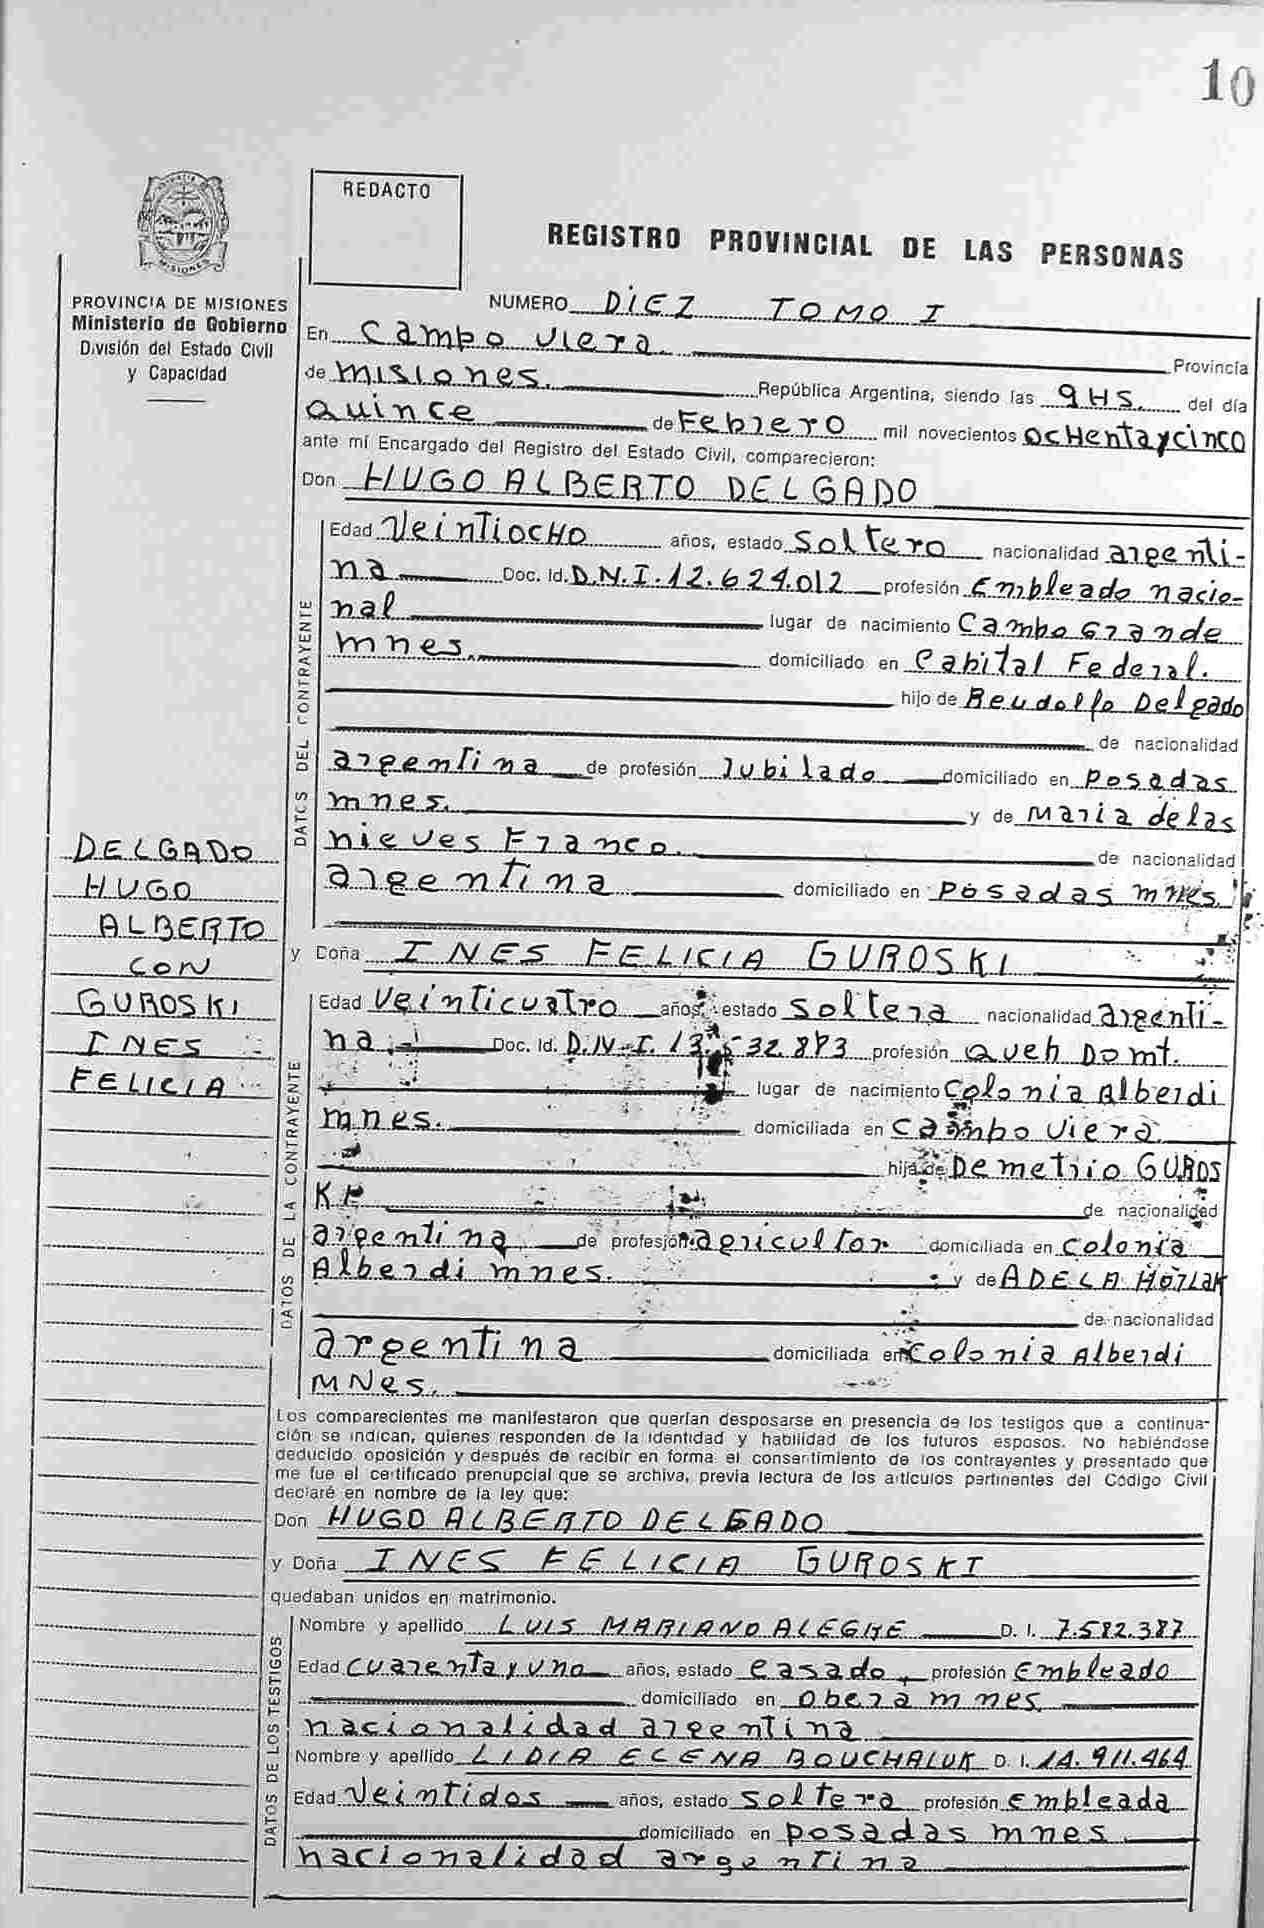 10
REDACTO
REGISTRO PROVINCIAL DE LAS PERSONAS
MISIONES
PROVINCIA DE MISIONES
Ministerio de Gobierno
División del Estado Civil
y Capacidad
NUMERO DIEZ TOMO I
En Campo Viera Provincia
de misiones. República Argentina, siendo las 9 HS. del día
quince de Febrero mil novecientos ocHenta y cinco
ante mí Encargado del Registro del Estado Civil, comparecieron:
Don HUGO ALBERTO DELGADO
DATOS DEL CONTRAYENTE
Edad VeintiocHo años, estado Soltero nacionalidad argenti-
na Doc. Id. D.N.I. 12.624.012 profesión Empleado nacio-
nal lugar de nacimiento Campo Grande
mnes. domiciliado en Capital Federal.
hijo de Reudolfo Delgado
de nacionalidad
argentina de profesión Jubilado domiciliado en posadas
mnes. y de Maria delas
nieves Franco. de nacionalidad
argentina domiciliado en posadas mnes.
DELGADO
HUGO
ALBERTO
CON
GUROSKI
INES
FELICIA
y Doña INES FELICIA GUROSKI
DATOS DE LA CONTRAYENTE
Edad Veinticuatro años, estado Soltera nacionalidad argenti-
na Doc. Id. D.N.I. profesión queh Domt.
lugar de nacimiento Colonia Alberdi
mnes. domiciliada en Campo Viera
hija de Demetrio GUROS
KI de nacionalidad
argentina de profesión agricultor domiciliada en Colonia
Alberdi mnes. y de ADELA
de nacionalidad
argentina domiciliada en Colonia Alberdi
MNes.
Los comparecientes me manifestaron que querían desposarse en presencia de los testigos que a continua-
ción se indican, quienes responden de la identidad y habilidad de los futuros esposos. No habiéndose
deducido oposición y después de recibir en forma el consentimiento de los contrayentes y presentado que
me fue el certificado prenupcial que se archiva, previa lectura de los artículos pertinentes del Código Civil
declaré en nombre de la ley que:
Don HUGO ALBERTO DELGADO
y Doña INES FELICIA GUROSKI
quedaban unidos en matrimonio.
DATOS DE LOS TESTIGOS
Nombre y apellido LUIS MARIANO ALEGRE D. I. 7.582.387
Edad cuarenta y uno años, estado casado, profesión Empleado
domiciliado en obera mnes.
nacionalidad argentina
Nombre y apellido LIDIA ELENA BOUCHALUK D. I. 14.911.464
Edad Veintidos años, estado soltera profesión Empleada
domiciliado en posadas mnes
nacionalidad argentina